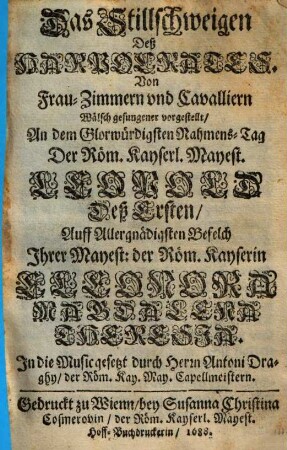 Das Stillschweigen
Deß
HARPOCRATES.
Von
Frau-Zimmern vnd Cavalliern
Wälsch gesungener vorgestellt/
An dem Glorwürdigsten Nahmens-Tag
Der Röm. Kayserl. Mayest.
LEOPOLD
Deß Ersten/
Auff Allergnädigsten Befelch
Ihrer Mayest: der Röm. Kayserin
ELEONORA
MAGDALENA
THERESIA.
In die Music gesetzt durch Herrn Antoni Dra-
ghy/ der Röm. Kay. May. Capellmeistern.
Gedruckt zu Wienn/ bey Susanna Christina
Cosmerovin/ der Röm. Kayserl. Mayest.
Hoff-Buchdruckerin/ 1688.